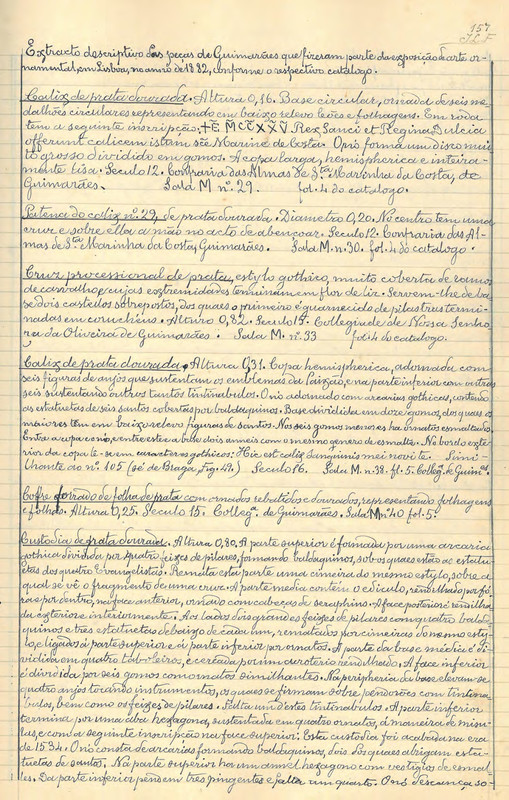 157
Extracto descriptivo das peças de Guimarães que fizeram parte da exposição de arte or-
namental, em Lisboa, no anno de 1882, conforme o respectivo catalogo.
Calix de prata dourada. Altura 0,16. Base circular, ornada de seis me-
dalhões circulares representando em baixo relevo leões e folhagens. Em roda
tem a seguinte inscripção, +E M̄ C̄C̄ X̄X̄V̄ Rex Sanci et Regina Dulcia
offerunt calicem istum sce Marine de Costa. O nó forma um disco mui-
to grosso dividido em gomos. A copa larga, hemispherica e inteira-
mente lisa. Seculo 12. Confraria das Almas de Sta Marinha da Costa, de
Guimarães. Sala M nº 29. fol. 4 do catalogo.
Patena do calix nº 29, de prata dourada. Diametro 0,20. No centro tem uma
cruz e sobre ella a mão no acto de abençoar. Seculo 12. Confraria das Al-
mas de Sta Marinha da Costa, Guimarães. Sala M nº 30. fol. 4 do catalogo.
Cruz processional de prata, estylo gothico, muito coberta de ramos
de carvalho, cujas extremidades terminam em flor de liz. Servem-lhe de ba
se dois castellos sobrepostos, dos quaes o primeiro é guarnecido de pilastras termi-
nadas em coruchéus. Altura 0,82. Seculo 15. Collegiada de Nossa Senho
ra da Oliveira de Guimarães. Sala M. nº 33 fol. 4 do catalogo.
Calix de prata dourada. Altura 0,31. Copa hemispherica, adornada com
seis figuras de anjos que sustentam os emblemas da Paixão, e na parte inferior com outros
seis sustentando outros tantos tintinabulos. O nó adornado com arcarias gothicas, contendo
as estatuetas de seis santos cobertas por baldaquinos. Base dividida em doze gomos, dos quaes os
maiores têm em baixo relevo figuras de santos. Nos seis gomos menores ha ornatos esmaltados.
Entre a copa e o nó, e entre este e a base dois anneis com o mesmo genero de esmaltes. No bordo exte-
rior da copa lê-se em caracteres gothicos: Hic est calix sanguinis mei novi te. Simi-
lhante ao nº 105 (sé de Braga, Fig. 49.) Seculo 16. Sala M. nº 38. fl. 5. Collegª. de Guimes.
Cofre forrado de folha de prata com ornados rebatidos e dourados, representando folhagens
e folhos. Altura 0,25. Seculo 15. Collegª. de Guimarães. Sala M nº 40 fol. 5.
Custodia de prata dourada. Altura 0,80. A parte superior é formada por uma arcaria
gothica dividida por quatro feixes de pilares, formando baldaquinos, sob os quaes estão as estatu-
etas dos quatro Evangelistas. Remata esta parte uma cimeira do mesmo estylo, sobre a
qual se vê o fragmento de uma cruz. A parte media contém o ediculo, rendilhado por fó-
ra e por dentro, na face anterior, ornado com cabeças de seraphins. A face posterior é rendilha
da exterior e interiormente. Aos lados dois grandes feixes de pilares com quatro balda-
quinos e três estatuetas debaixo de cada um, rematados por cimeiras do mesmo esty-
lo, e ligados á parte superior e á parte inferior por ornatos. A parte da base média é di-
vidida em quatro taboleiros, e cercada por um acroterio rendilhado. A face inferior
é dividida por seis gomos com ornatos similhantes. Na peripheria da base elevam-se
quatro anjos tocando instrumentos, os quaes se firmam sobre pendorões com tintina-
bulos, bem como os feixes de pilares. Falta um d'estes tintinabulos. A parte inferior
termina por uma aba hexagona, sustentada em quatro ornatos, á maneira de misu-
las, e com a seguinte inscripção na face superior: Esta custodia foi acabada na era
de 1534. O nó consta de arcarias formando baldaquinos, dois dos quaes abrigam esta-
tuetas de santos. Na parte superior ha um annel hexagono com vestigios de esmal-
tes. Da parte inferior pendem três pingentes e falta um quarto. O nó descança so-